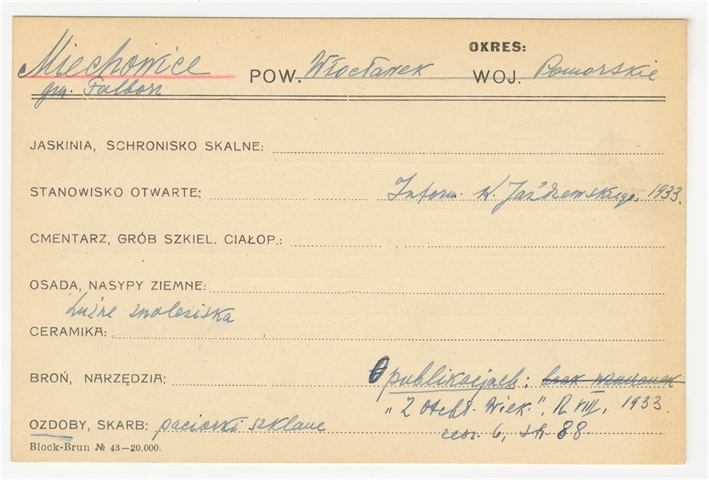 OKRES:
Miechowice POW. Włocławek WOJ. Pomorskie
gm. Falborz
JASKINIA, SCHRONISKO SKALNE:
STANOWISKO OTWARTE: Inform. K. Jażdżewskiego, 1933.
CMENTARZ, GRÓB SZKIEL. CIAŁOP.:
OSADA, NASYPY ZIEMNE:
Luźne znaleziska
CERAMIKA:
BROŃ, NARZĘDZIA: O publikacjach: brak wzmianek
"Z Otchł. Wiek.", R. VIII, 1933.
OZDOBY, SKARB: paciorki szklane zesz. 6, str. 88
Block-Brun № 43—20.000.